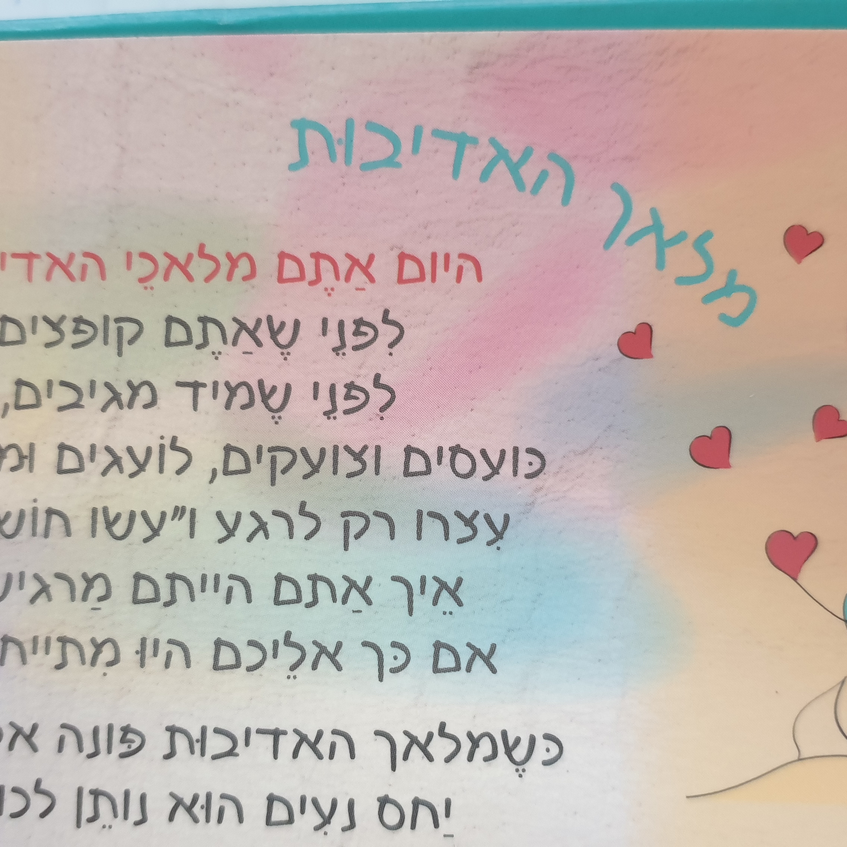 מלאך האדיבוּת
היום אַתֶּם מלאכֵי
לִפְנֵי שֶׁאַתֶּם קופצים
לִפְנֵי שֶׁמיד מגיבים,
כּועסים וצועקים, לוֹעגים
עִצרו רק לרגע ו״עשו
אֵיך אַתם הייתם
אם כּך אלֵיכם היוּ
כּשֶׁמלאך האדיבוּת פּונה
יַחס נעִים הוּא נותֵן